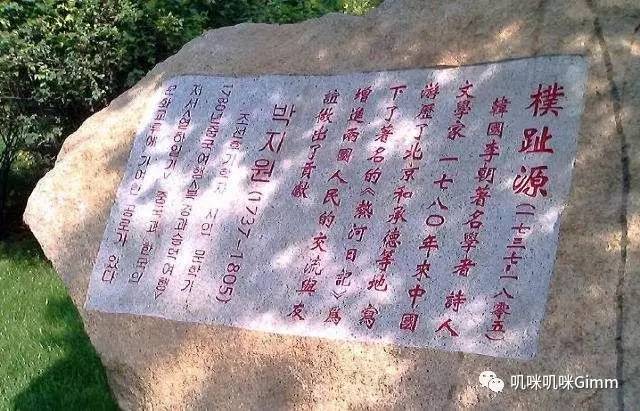 樸趾源(一七三七-一八零五)
韓國李朝著名學者 詩人
文學家 一七八〇年來中國
游歷了北京和承德等地 寫
下了著名的《熱河日記》爲
增進兩國人民的交流與友
誼做出了貢獻
박지원(1737-1805)
조선후기학자 시인 문학가
1780년중국여행
저서<열하일기>중국과 한국의
문화교류에 기여한 공로가 있다
叽咪叽咪Gimm